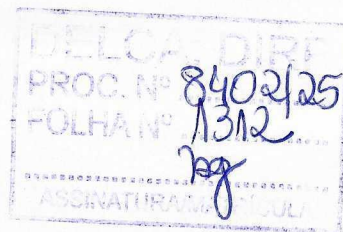 DELCA DIRP
PROC. Nº 8402/25
FOLHA Nº 1312
ASSINATURA/MATRÍCULA